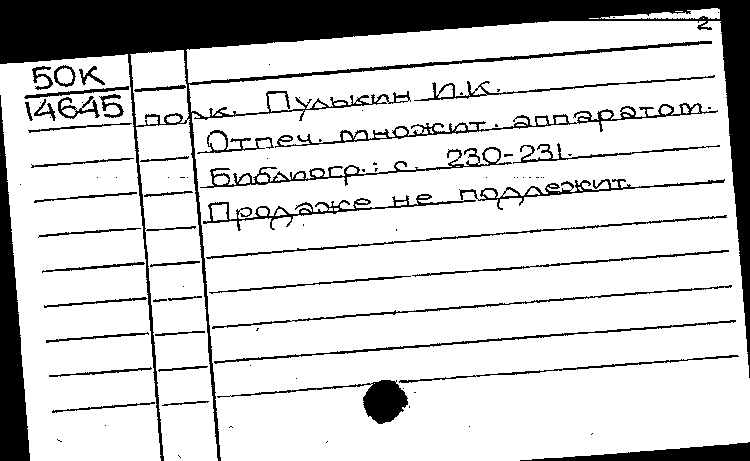 2
50К
14645
полк. Пулькин И.К.
Отпеч. множит. аппаратом.
Библиогр.: с. 230-231.
Продаже не подлежит.